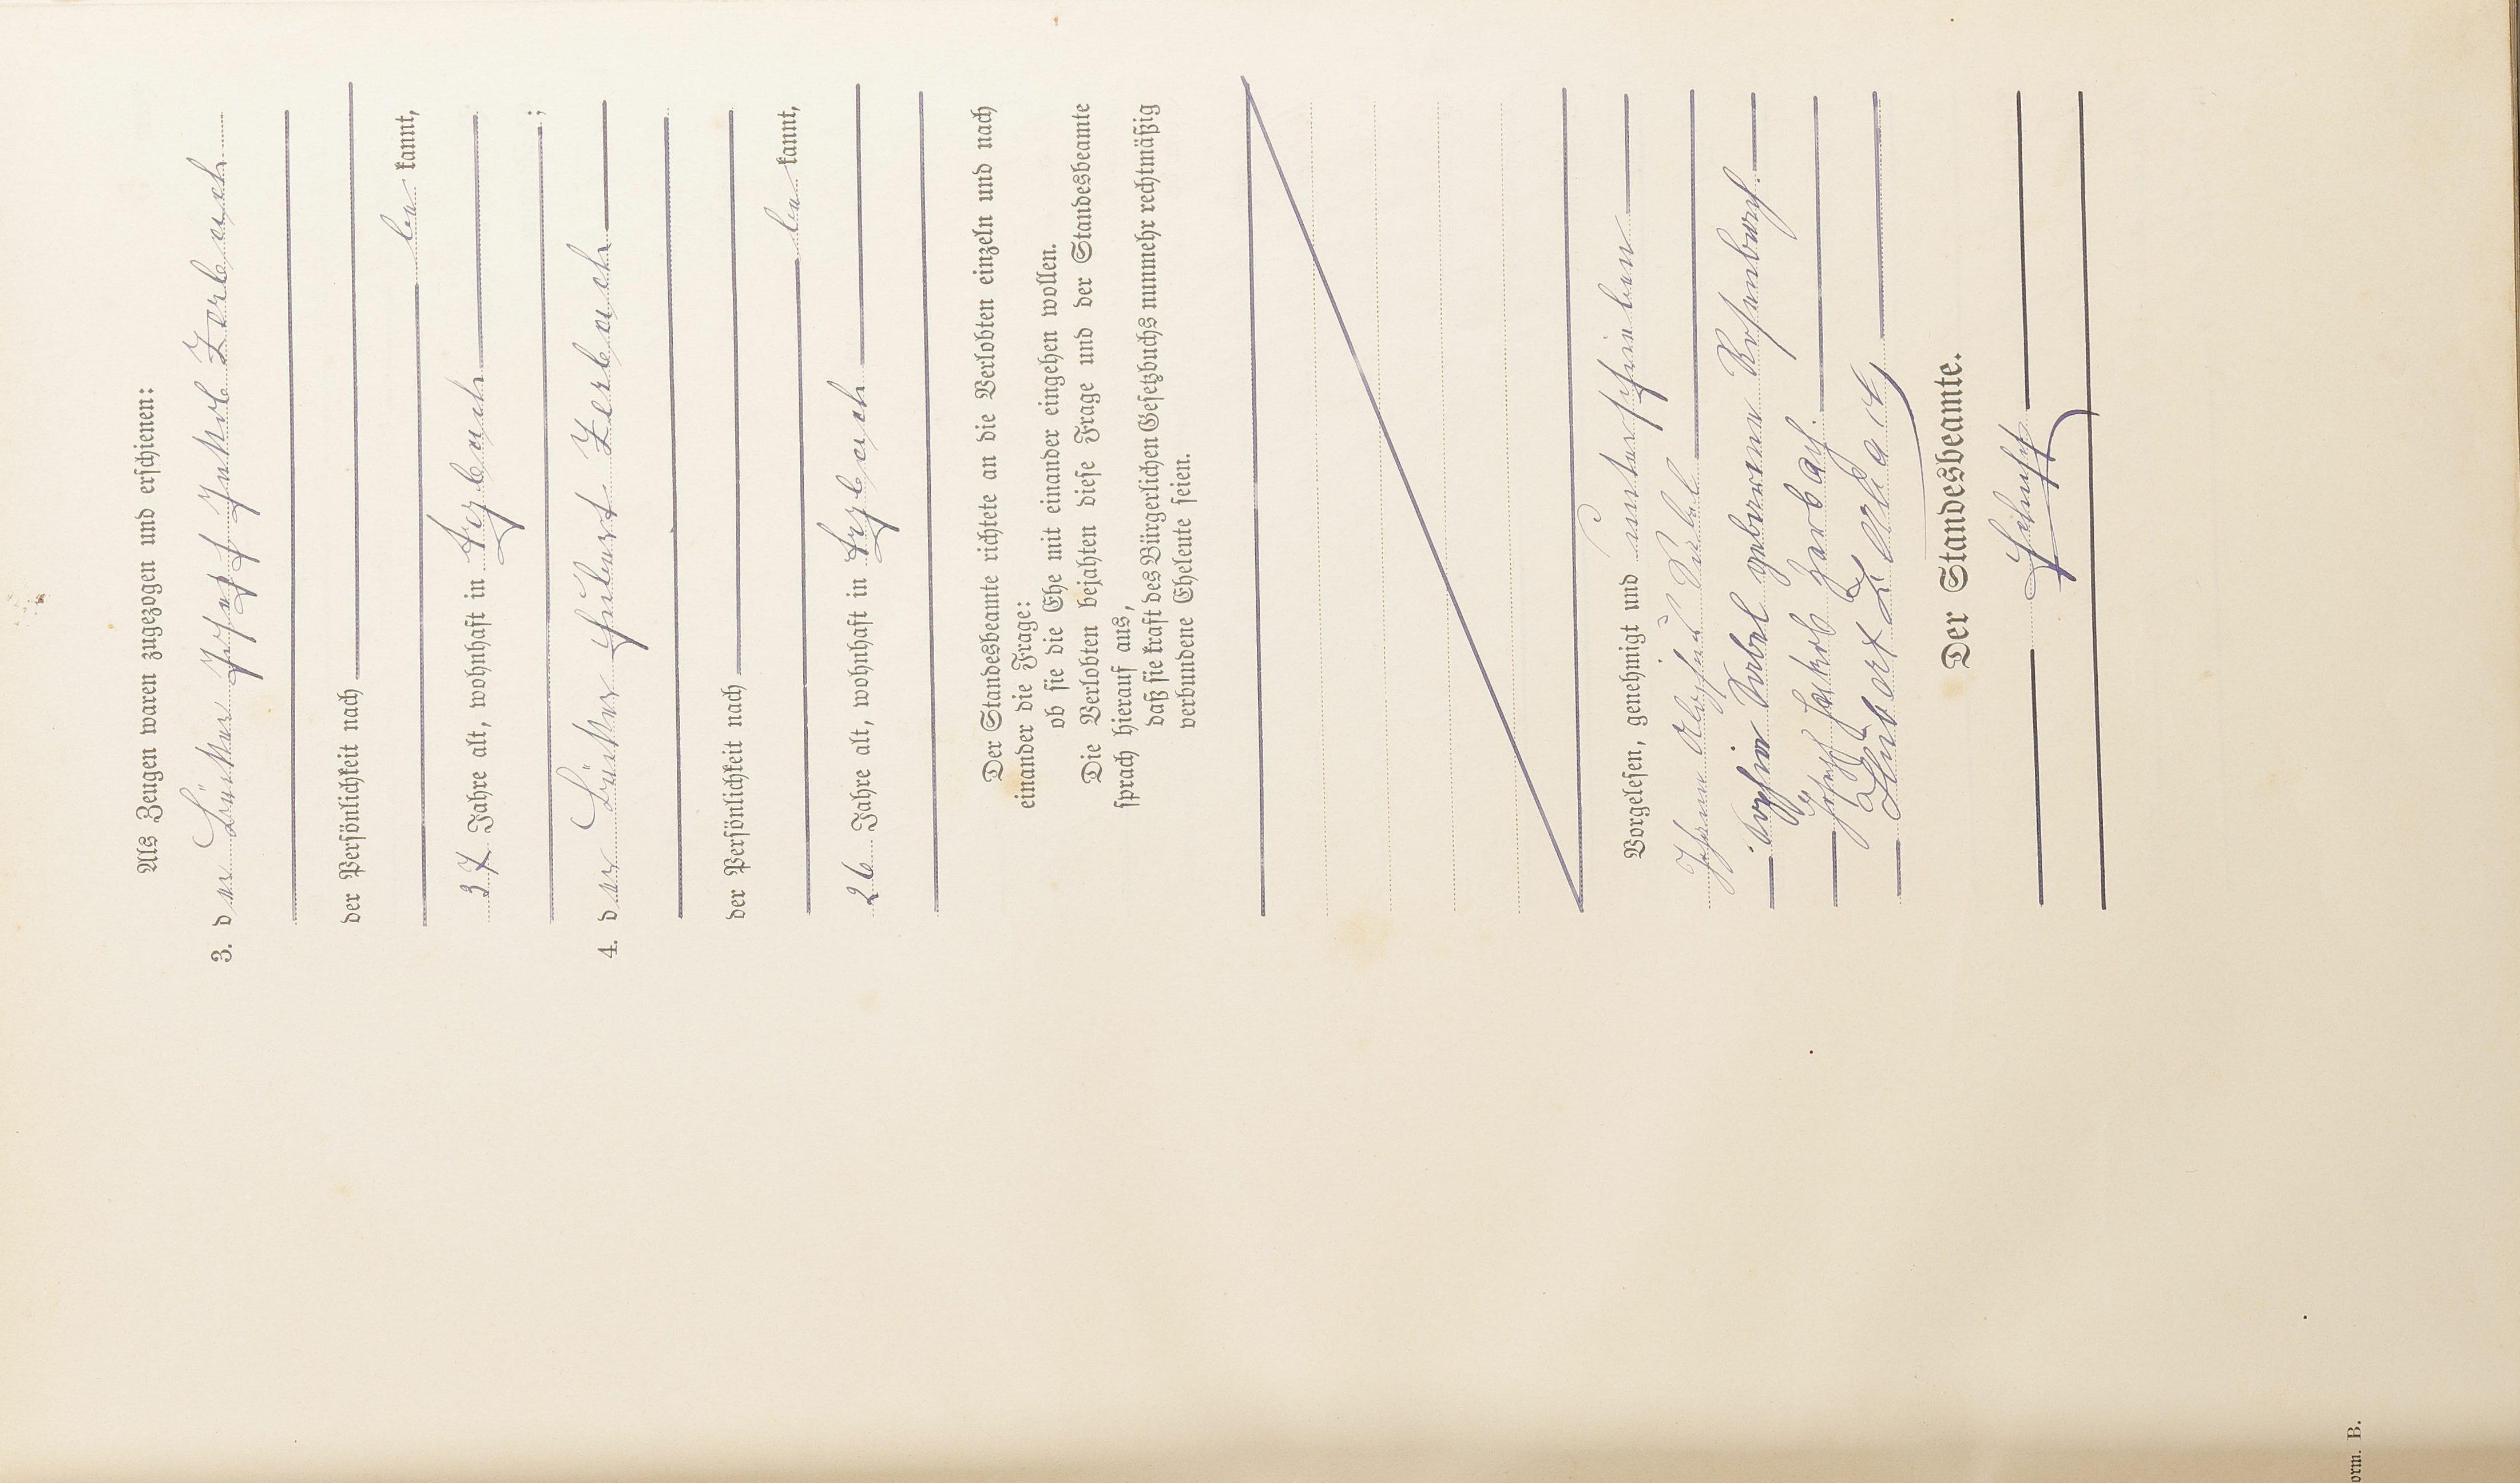 Als Zeugen waren zugezogen und erschienen:
3. der Bäcker Josef Jakob Zerbach
der Persönlichkeit nach
be kannt,
37 Jahre alt, wohnhaft in
;
4. der Bäcker Hubert Zerbach
der Persönlichkeit nach
be kannt,
26 Jahre alt, wohnhaft in
Der Standesbeamte richtete an die Verlobten einzeln und nach
einander die Frage:
ob sie die Ehe mit einander eingehen wollen.
Die Verlobten bejahten diese Frage und der Standesbeamte
sprach hierauf aus,
daß sie kraft des Bürgerlichen Gesetzbuchs nunmehr rechtmäßig
verbundene Eheleute seien.
Vorgelesen, genehmigt und unterschrieben
Johann
Sophia geborene Rosenburg
Josef Jakob Zerbach
Hubert Zerbach
Der Standesbeamte.
orm. B.